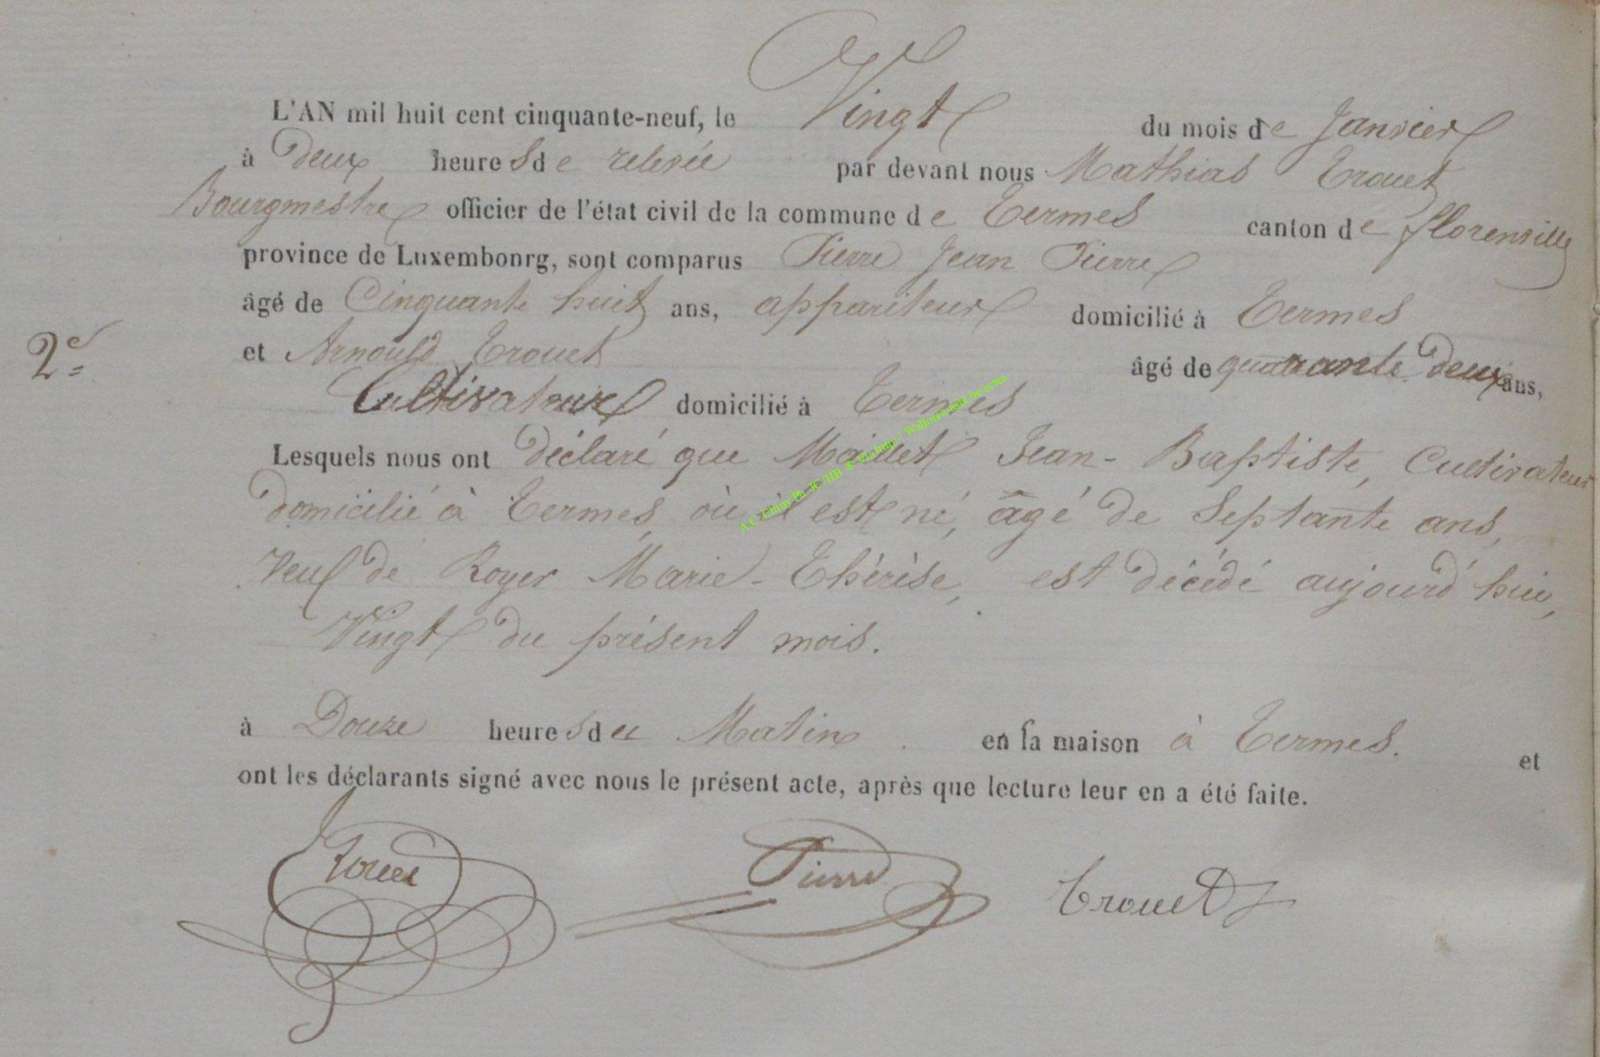 L'AN mil huit cent cinquante-neuf, le Vingt du mois de Janvier
à deux heures de relevée par devant nous Mathias Trouet
Bourgmestre officier de l'état civil de la commune de Termes canton de florenville
province de Luxembonrg, sont comparus Pierre Jean Pierre
âgé de Cinquante huit ans, appariteur domicilié à Termes
2e
et Arnould Trouet âgé de quarante deux ans,
Cultivateur domicilié à Termes
Lesquels nous ont déclaré que Maillet Jean-Baptiste, Cultivateur
domicilié à Termes, où il est né, âgé de Septante ans,
Veuf de Royer Marie-Thérèse, est décédé aujourd'hui,
Vingt du présent mois.
à Douze heures du Matin en sa maison à Termes. et
ont les déclarants signé avec nous le présent acte, après que lecture leur en a été faite.
Pierre Trouet